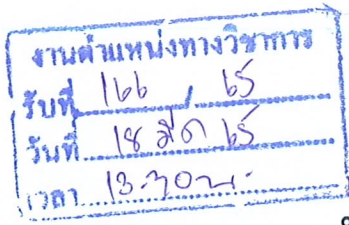 งานตำแหน่งทางวิชาการ
รับที่ 166 / 65
วันที่ 18 มีค 65
เวลา 13.30 น.